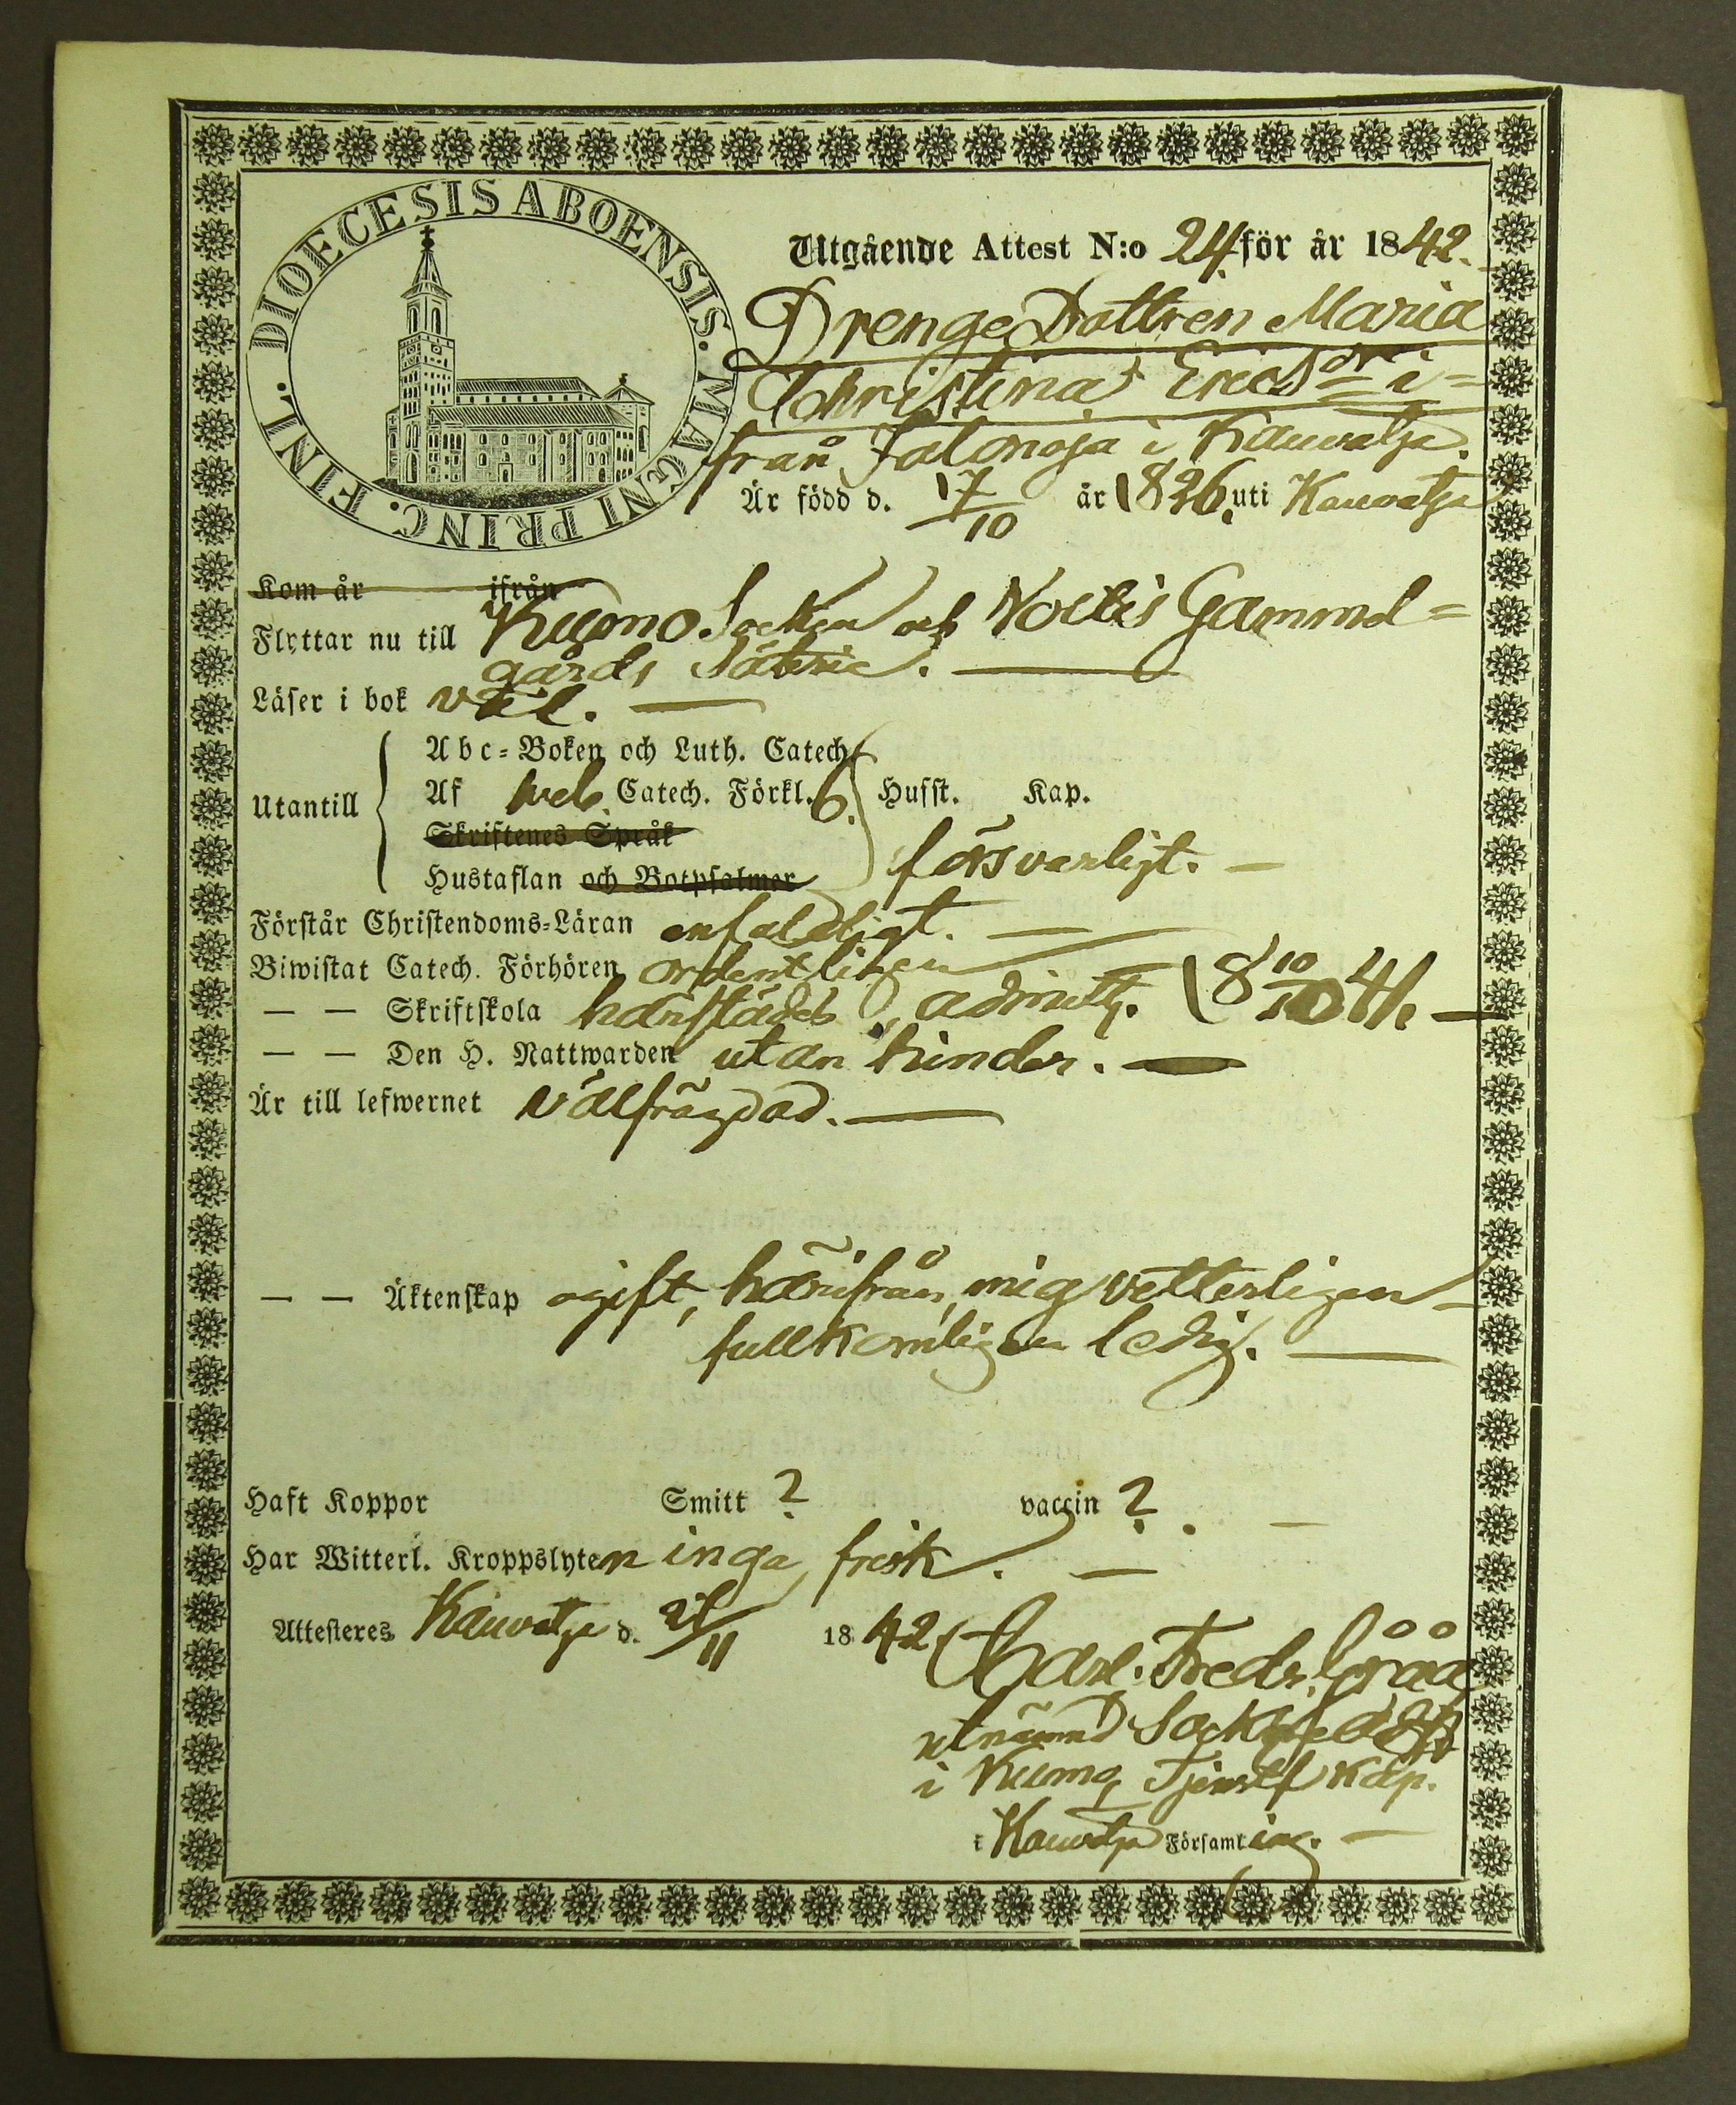 DIOECESIS ABOENSIS. MAGNI PRINC. FINL.
Utgående Attest N:o 24 för år 1842.
Drenge Dottren Maria
Christina Ericsdr i-
från Jalonoja i Kauvatsa.
Är född d. 17/10 år 1826. uti Kauvatsa
Kom år ifrån
Flyttar nu till Kumo Socken och Gammel=
gårds Säterie.
Läser i bok väl.
Abc=Boken och Luth. Catech.
Utantill Af Sveb. Catech. Förkl. 6. Husst. Kap.
Skriftenes Språk
Hustaflan och Botpsalmer försvarligt.
Förstår Christendoms=Läran enfaldligt.
Biwistat Catech. Förhören ordentligen
— — Skriftskola härstädes, admitt. 18 10/10 41.
— — Den H. Nattwarden utan hinder.
Är till lefwernet välfrägdad.
— — Äktenskap ogift, härifrån, mig vetterligen
fullkomligen ledig.
Haft Koppor Smitt ? vaccin ?.
Har Witterl. Kroppslyten inga, frisk.
Attesteres Kauvatsa d. 1842 Carl. Fredr. Gråå
utnämnd
i Kumo, Tjenstf Kap.
i Kauvatsa Församling.